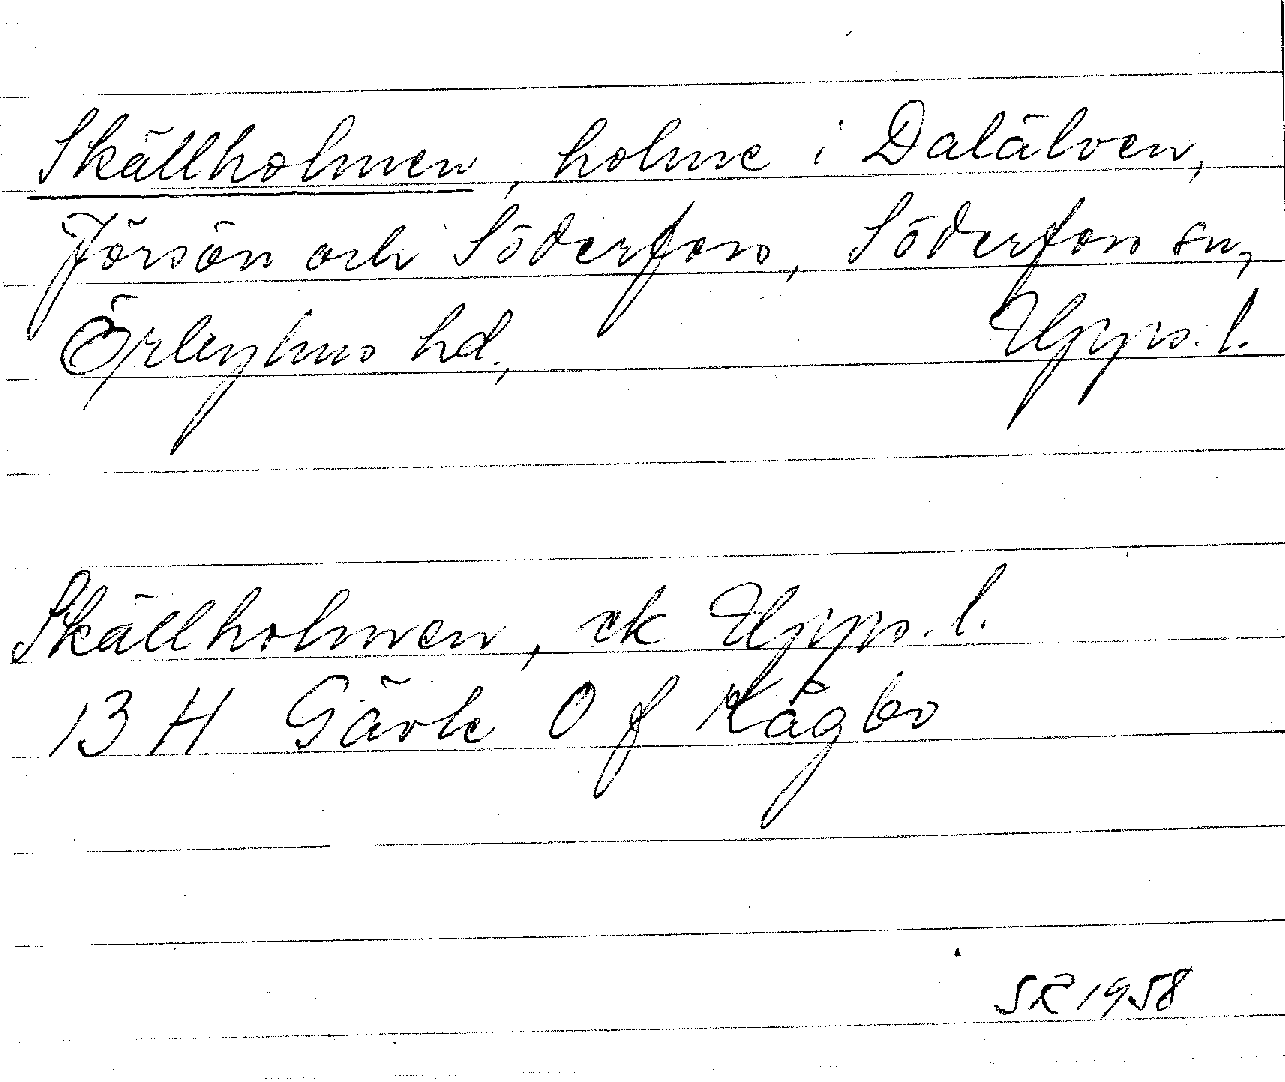 Skällholmen, holme i Dalälven,
Jörsön och Söderfors, Söderfors sn,
Örbyhus hd, Upps. l.
Skällholmen, ek Upps. l.
13 H Gävle 0 f Kågbo
SR 1958